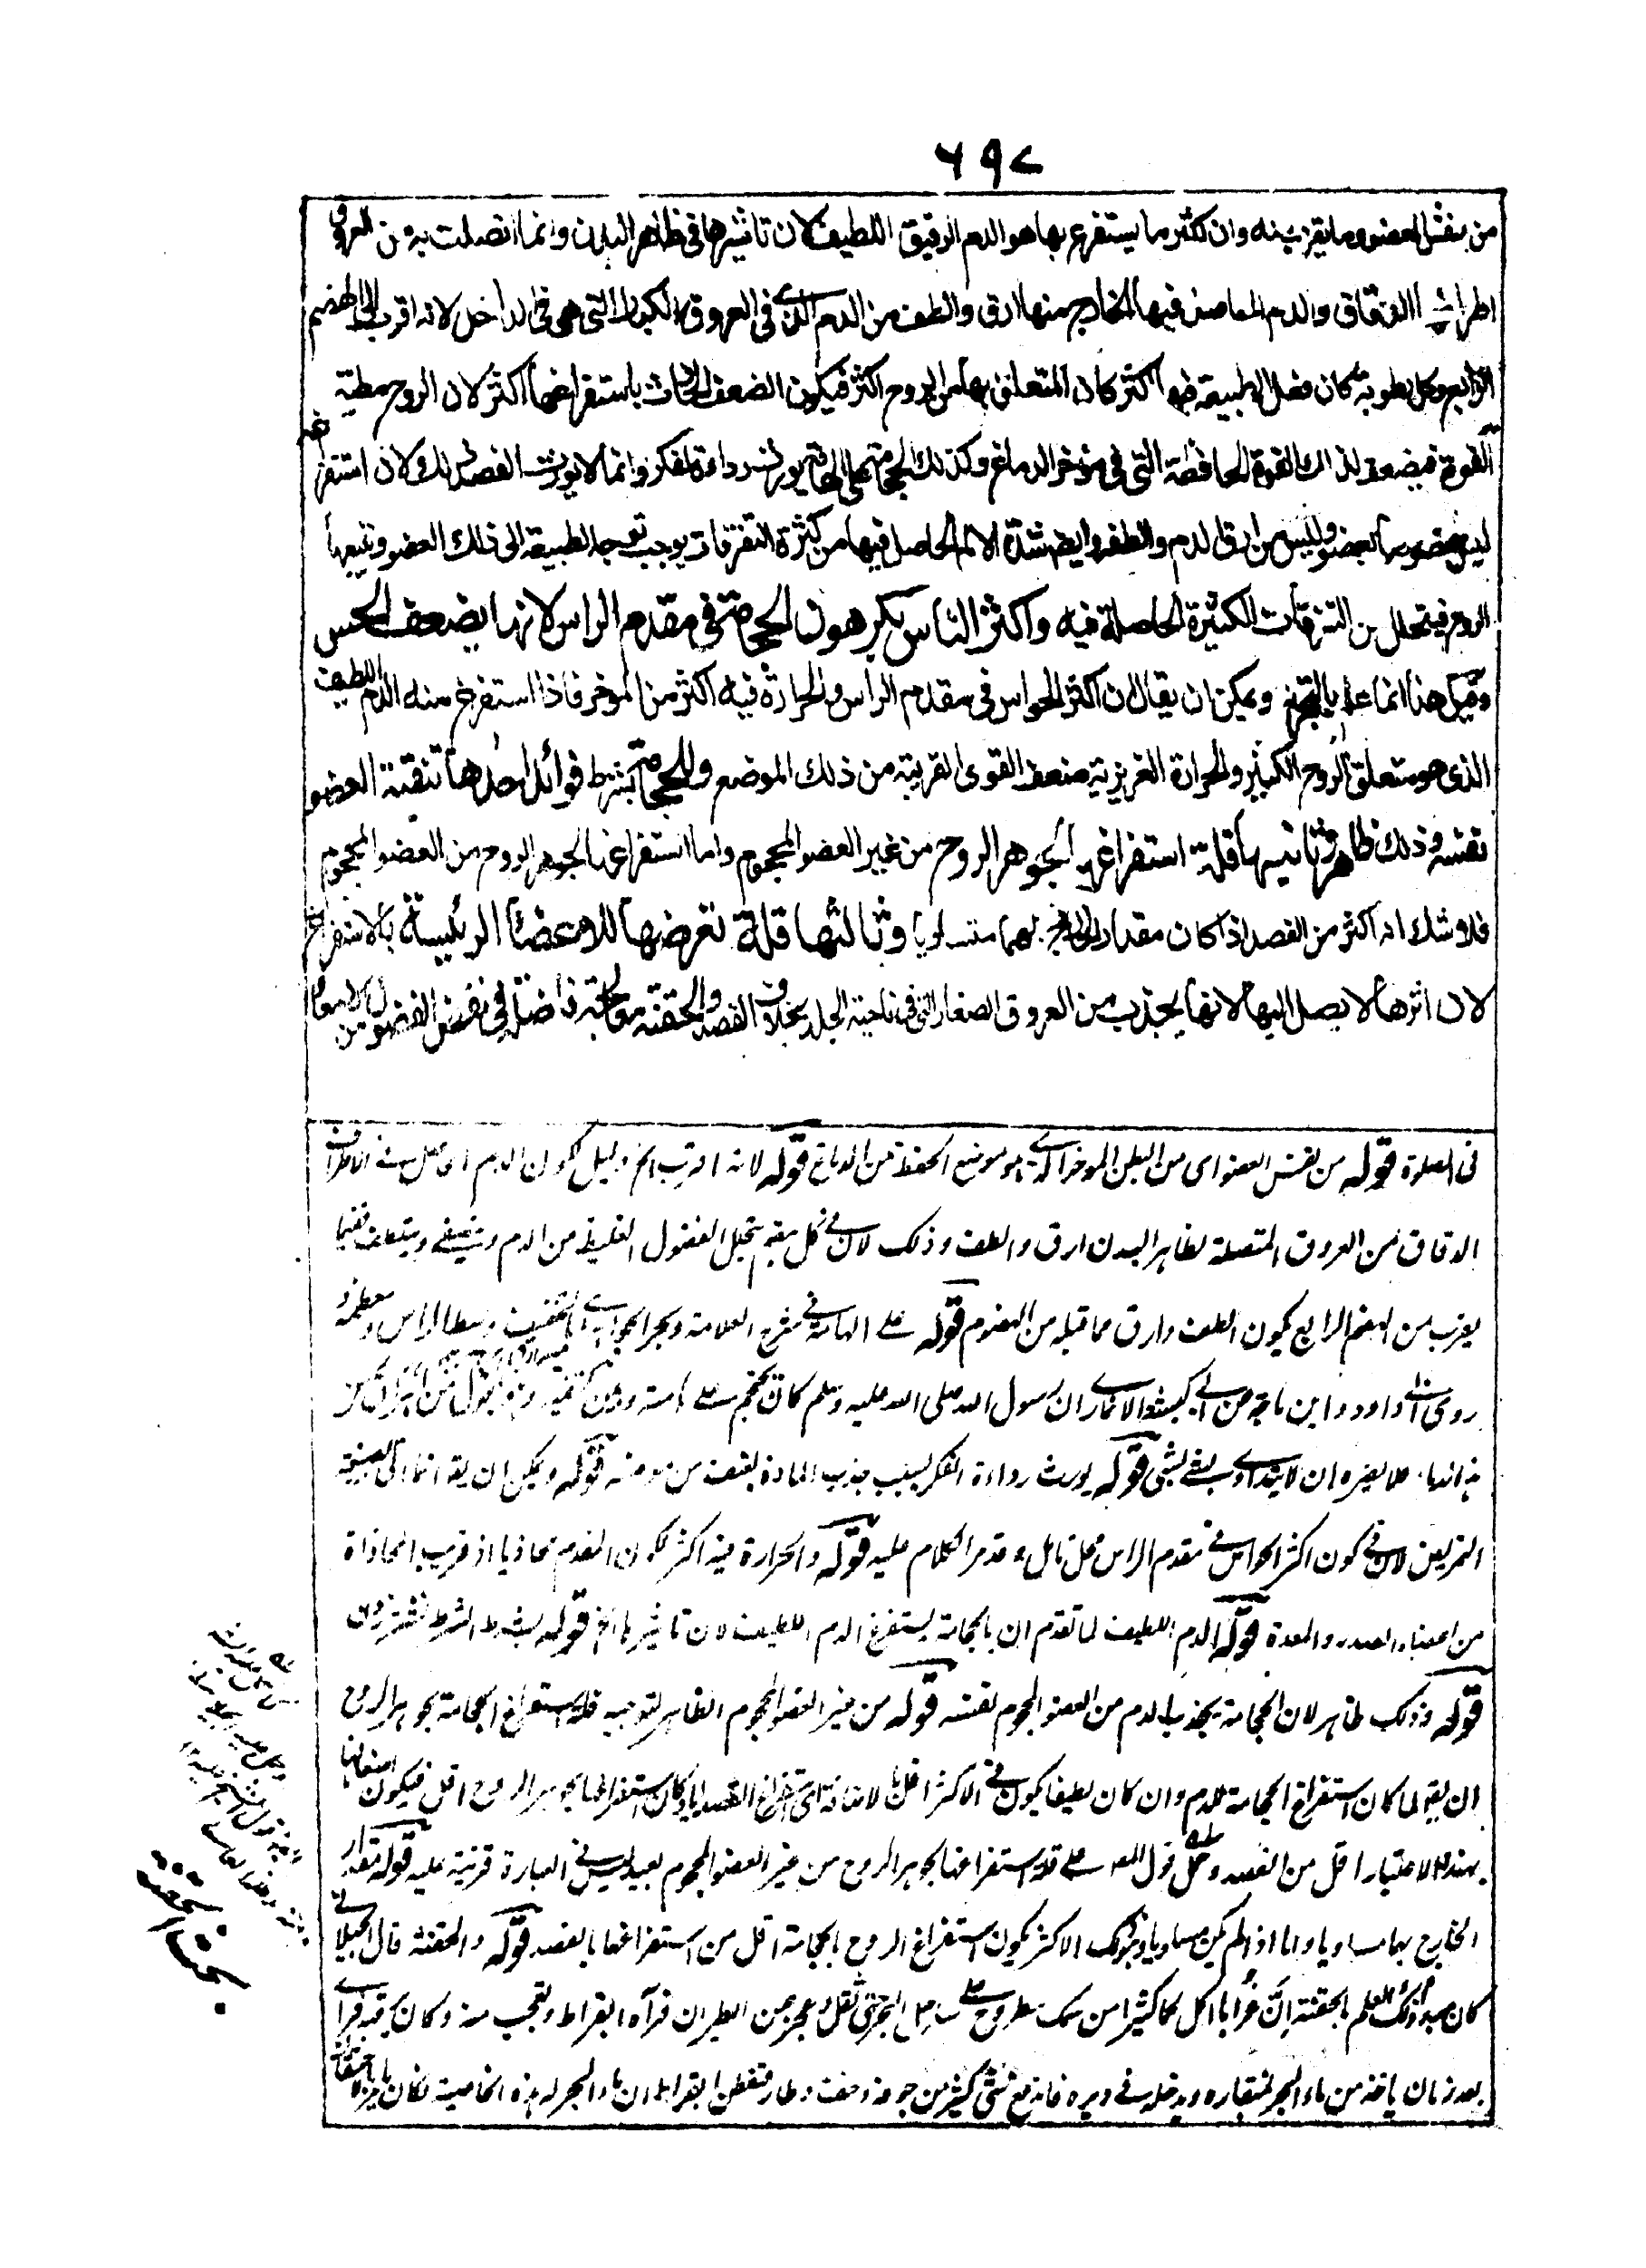 ٦٩٧
من نفس العضو وما يقرب منه وان كثر ما يستفرغ بها هو الدم الرقيق اللطيف لان تاثيرها فى ظاهر البدن وانما اتصلت به من العروق
اطراف الدقاق والدم الحاصل فيها الخارج منها ارق والطف من الدم الذي فى العروق الكبار التى هى فى الداخل لانه اقرب الى الهضم
الرابع وكل رطوبة كان فعل الطبيعة فيها اكثر كان المتعلق بها من الروح اكثر فيكون الضعف الحادث باستفراغها اكثر لان الروح مطية
القوة فيضعف لذلك القوة الحافظة التى فى موخر الدماغ وكذلك الحجامة على الهامة يورث رداءة الفكر وانما لا يورث الفصد ذلك لان استفراغه
ليس مخصوصا بعضو وليس من ارق الدم والطفه وايضا شدة الالم الحاصل فيها من كثرة التفرقات يوجب توجه الطبيعة الى ذلك العضو وتتبعها
الروح فيتحلل من التفرقات الكثيرة الحاصلة فيه واكثر الناس يكرهون الحجامة فى مقدم الراس لانها يضعف الحس
وقيل هذا انما علم بالتجربة ويمكن ان يقال ان اكثر الحواس فى مقدم الراس والحرارة فيه اكثر من الموخر فاذا استفرغ منه الدم اللطيف
الذى هو متعلق الروح الكثير والحرارة الغريزية ضعف القوى القريبة من ذلك الموضع وللحجامة بشرط فوائد احدها تنقية العضو
نفسه وذلك ظاهر وثانيها قلة استفراغها لجوهر الروح من غير العضو المحجوم واما استفراغها لجوهر الروح من العضو المحجوم
فلا شك انه اكثر من الفصد اذا كان مقدار الخارج بهما متساويا وثالثها قلة تعرضها للاعضاء الرئيسة بالاستفراغ
لان اثرها لا يصل اليها لانها يجذب من العروق الصغار التى فى ناحية الجلد بخلاف الفصد والحقنة معالجة فاضلة فى نفض الفضول من الامعاء
فى الصلوة قوله من نفس العضو اى من البطن الموخر الذي هو موضع الحفظ من الدماغ قوله لانه اقرب الخ دليل لكون الدم الحاصل فى الاطراف
الدقاق من العروق المتصلة لظاهر البدن ارق والطف وذلك لان فى كل هضم يتحلل الفضول الغليظ من الدم ويتصفى ويتلطف فما
يقرب من الهضم الرابع يكون الطف وارق مما قبله من الهضوم قوله على الهامة فى شرح العلامة وبحر الجواهر الهامة بالتخفيف وسط الراس ومعظمه
روى ابى داود وابن ماجه عن ابى كبشة الانمارى ان رسول الله صلى الله عليه وسلم كان يحتجم على هامته وبين كتفيه وهو يقول من اهراق من
هذه الدماء فلا يضره ان لا يتداوى بشئ لشئ قوله يورث رداءة الفكر بسبب جذب المادة بعنف من موضعه قوله ويمكن ان يقال انما اتى بصيغة
التمريض لان فى كون اكثر الحواس فى مقدم الراس محل تامل وقد مر الكلام عليه قوله والحرارة فيه اكثر لكون المقدم محاذيا اذ قريب المحاذاة
من اعضاء الصدر والمعدة قوله الدم اللطيف لما تقدم ان بالحجامة يستفرغ الدم اللطيف لان تاثيرها الخ قوله بشرط الشرط نشتر زدن
قوله وذلك ظاهر لان الحجامة يجذب الدم من العضو المحجوم نفسه قوله من غير العضو المحجوم الظاهر لتوجيه قلة استفراغ الحجامة بجوهر الروح
ان يقال لما كان استفراغ الحجامة للدم وان كان لطيفا يكون فى الاكثر اقل بالاضافة الى استفراغ الفصد اياه كان استفراغها بجوهر الروح اقل فيكون
بهذا الاعتبار اقل من الفصد وحمل قول المصـ على قلة استفراغها لجوهر الروح من غير العضو المحجوم بعيد ليس فى العبارة قرينة عليه قوله مقدار
الخارج بهما مساويا واما اذا لم يكن مساويا وذلك الاكثر يكون استفراغ الروح بالحجامة اقل من استفراغها بالفصد قوله والحقنة قال الجيلانى
كان مبدأ ذلك العلم بالحقنة ان غرابا اكل لحما كثيرا من سمك مطروح على ساحل البحر حتى ثقل وعجز عن الطيران فرآه البقراط وتعجب منه وكان يرقبه فرآى
بعد زمان ياخذ من ماء البحر بمنقاره ويدخله فى دبره فاندفع شئ كثير من جوفه وخف وطار فتفطن ابقراط ان ماء البحر له هذه الخاصية فكان يامر
بحث الحقنة